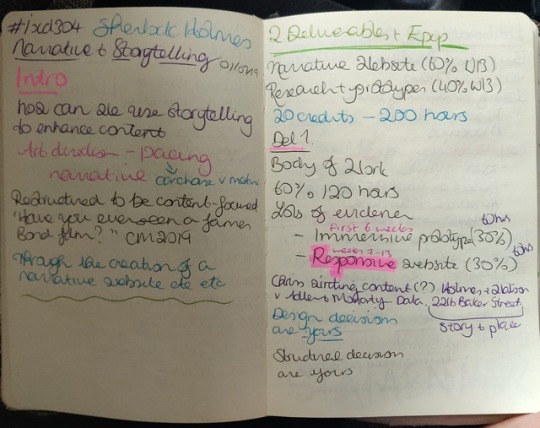 #ixd304 Sherlock Holmes
Narrative + Storytelling 01/10/19
Intro
how can we use storytelling
to enhance content
Art direction - pacing
narrative
Restructured to be content-focused
"Have you ever seen a James
Bond film?" CM 2019
through the creation of a
narrative website etc etc
2 Deliverables + Epop
Narrative Website (60% W13)
Research + prototypes (40% W13)
20 credits - 200 hours
Del 1.
Body of Work
60% 120 hours
Lots of evidence
60hrs
First 6 weeks
- Immersive prototype (30%)
weeks 7-13
60hrs
- Responsive website (30%)
Chris writing content (?) Holmes + Watson
v Adler + Moriarty Data, 221b Baker Street
Story + place
Design decisions
are yours
Structured decision
are yours